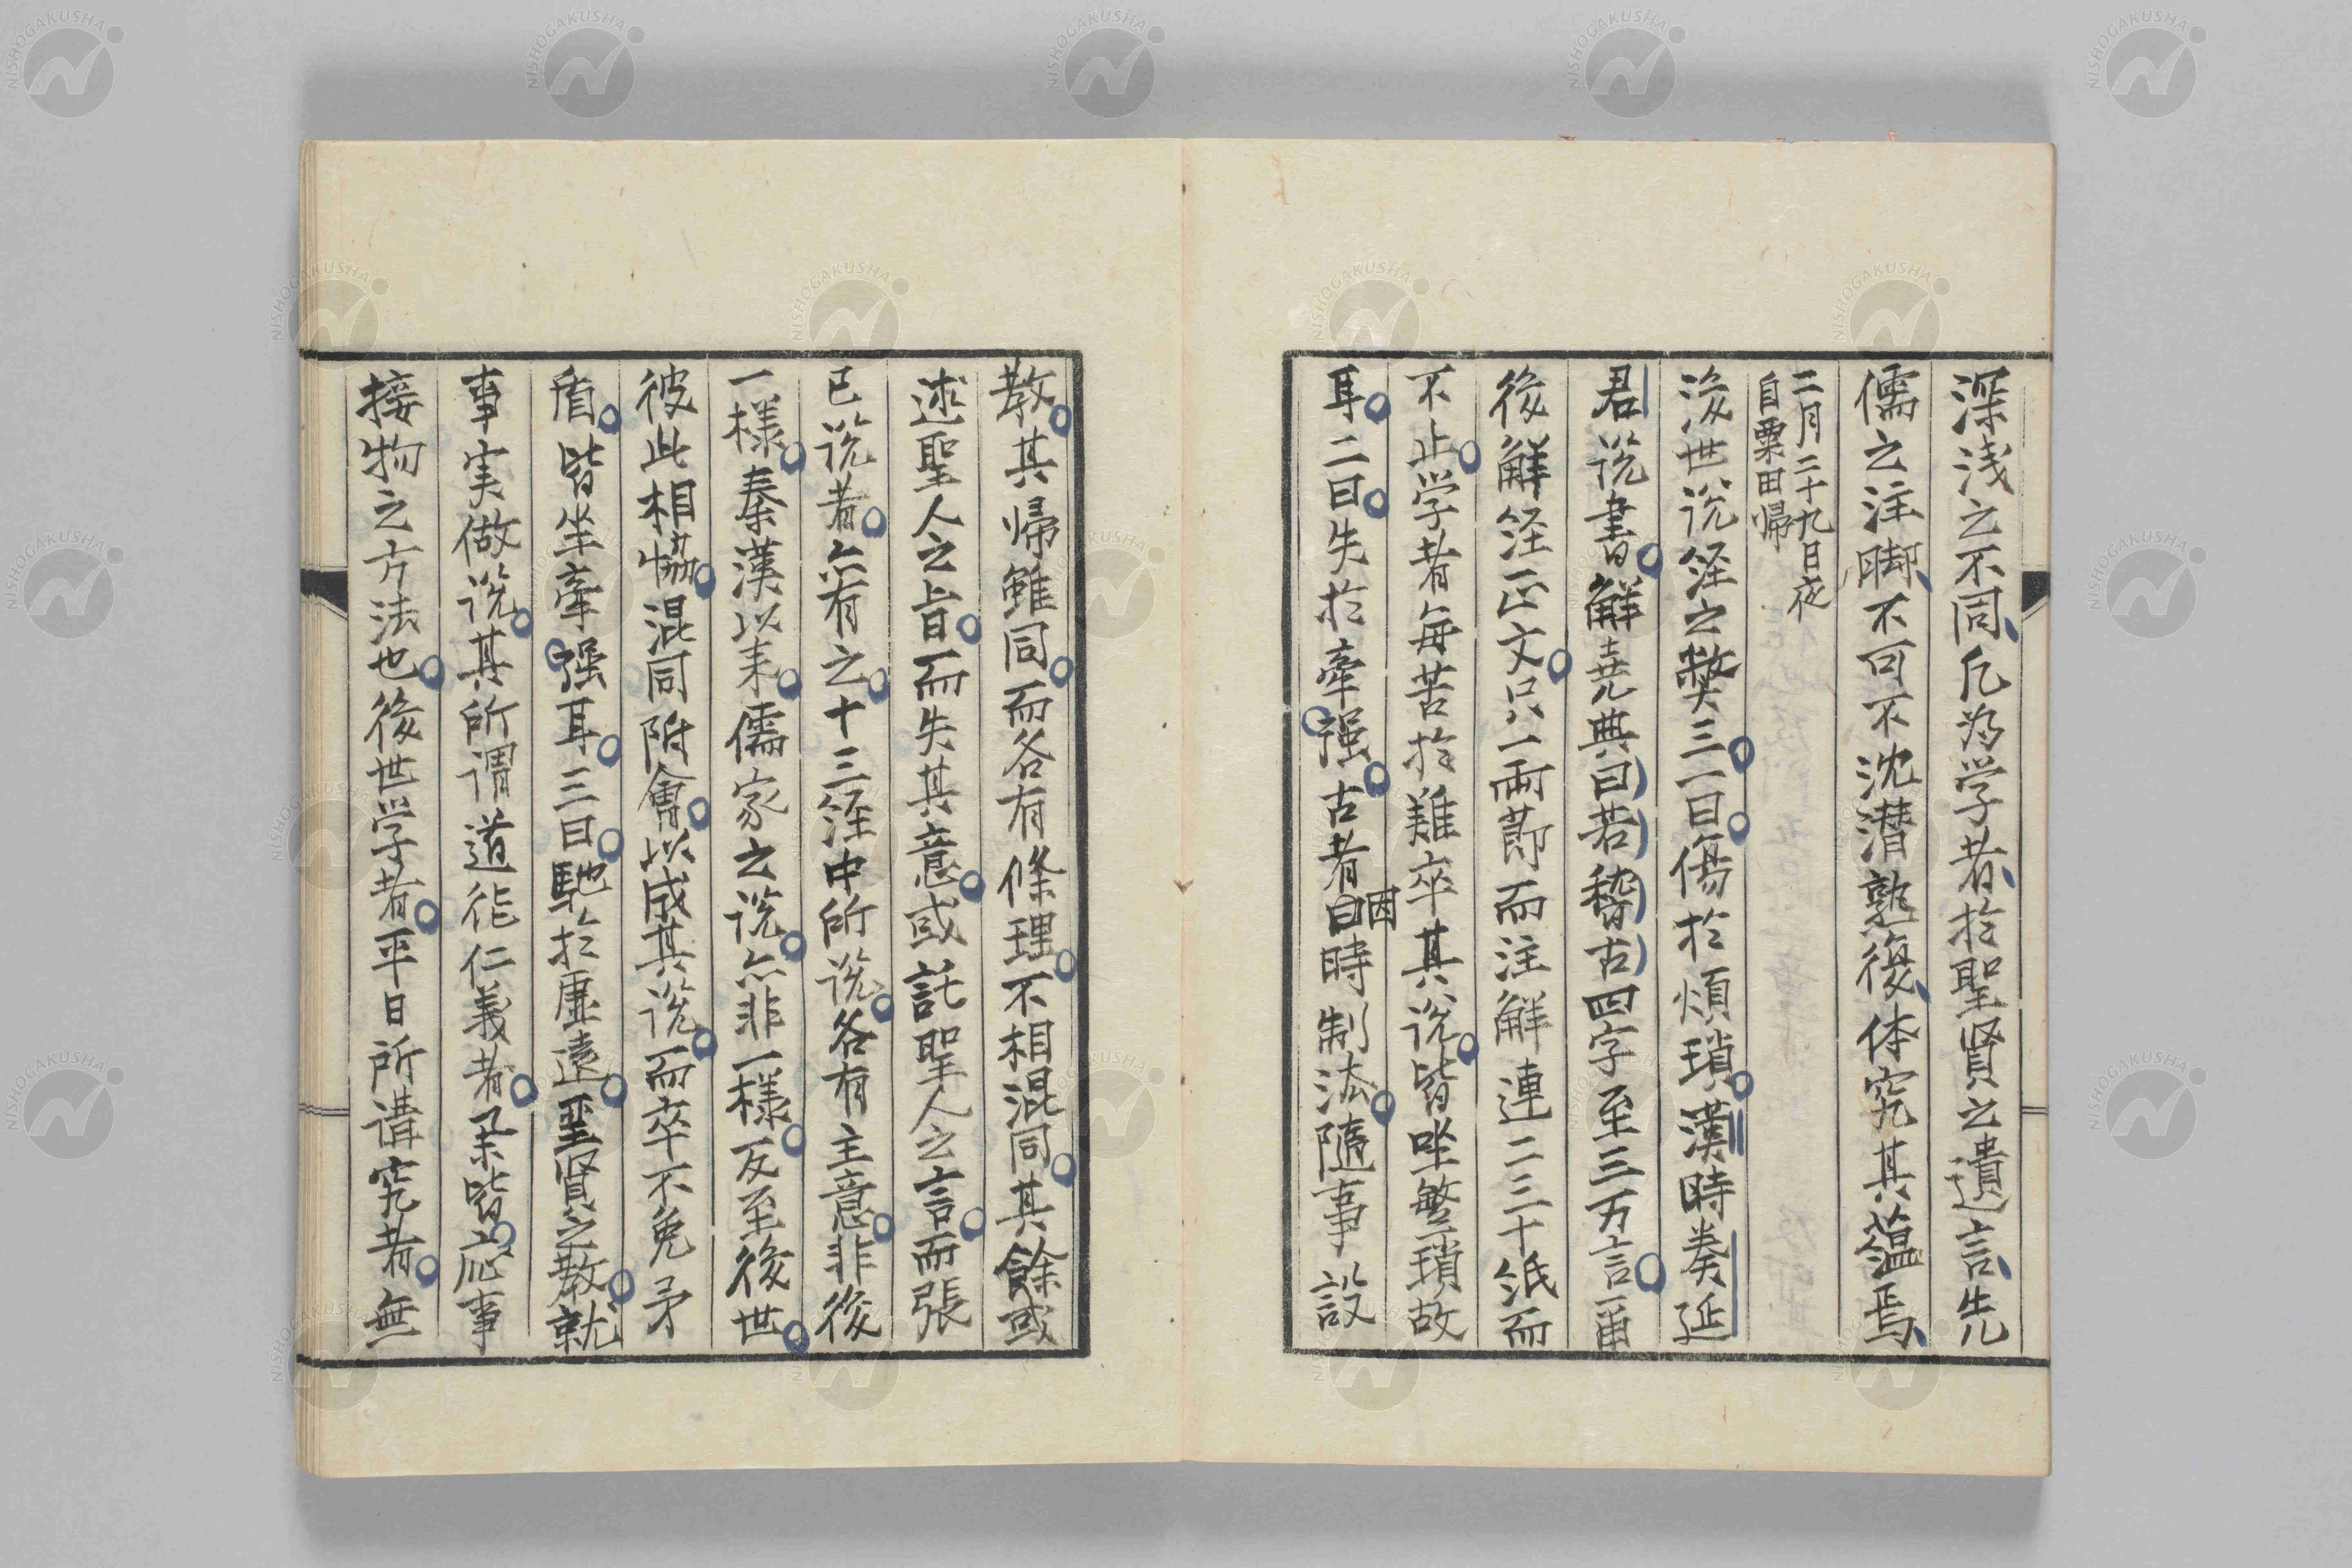 深浅之不同凡為学者於聖賢之遺言先
儒之注脚不可不沈潜熟復体究其蘊焉
二月二十九日夜
自粟田帰
後世说経之弊三一曰傷於煩瑣漢時奏延
君说書解堯典曰若稽古四字至三万言爾
後解経正文只一両節而注解連二三十紙而
不止学者毎苦於難卒其说皆坐繁瑣故
耳二曰失於牽强古者因時制法随事設
教其帰雖同而各有條理不相混同其餘或
述聖人之旨而失其意或託聖人之言而張
已说者亦有之十三経中所说各有主意非後
一様秦漢以来儒家之说亦非一様反至後世
彼此相恊混同附會以成其说而卒不免矛
盾皆坐牽强耳三曰馳於虚遠聖賢之教就
事実做说其所謂道徳仁義者果皆応事
接物之方法也後世学者平日所講究者無
NISHOGAKUSHA